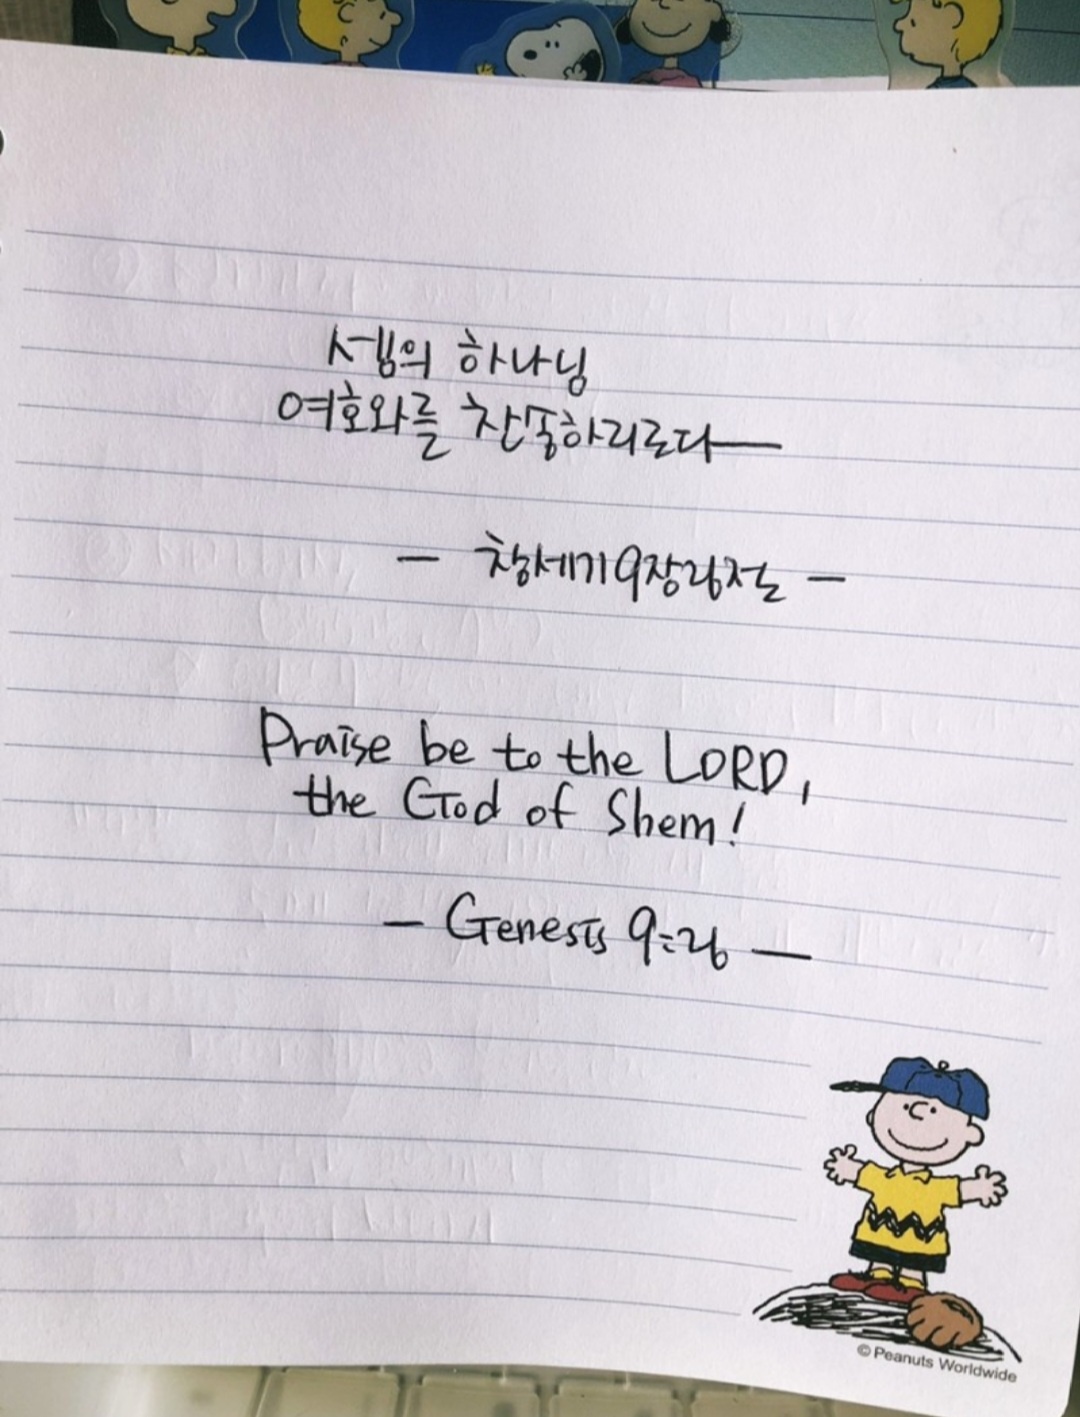 셈의 하나님
여호와를 찬송하리로다
- 창세기 9장 26절 -
Praise be to the LORD,
the God of Shem!
- Genesis 9:26 -
© Peanuts Worldwide